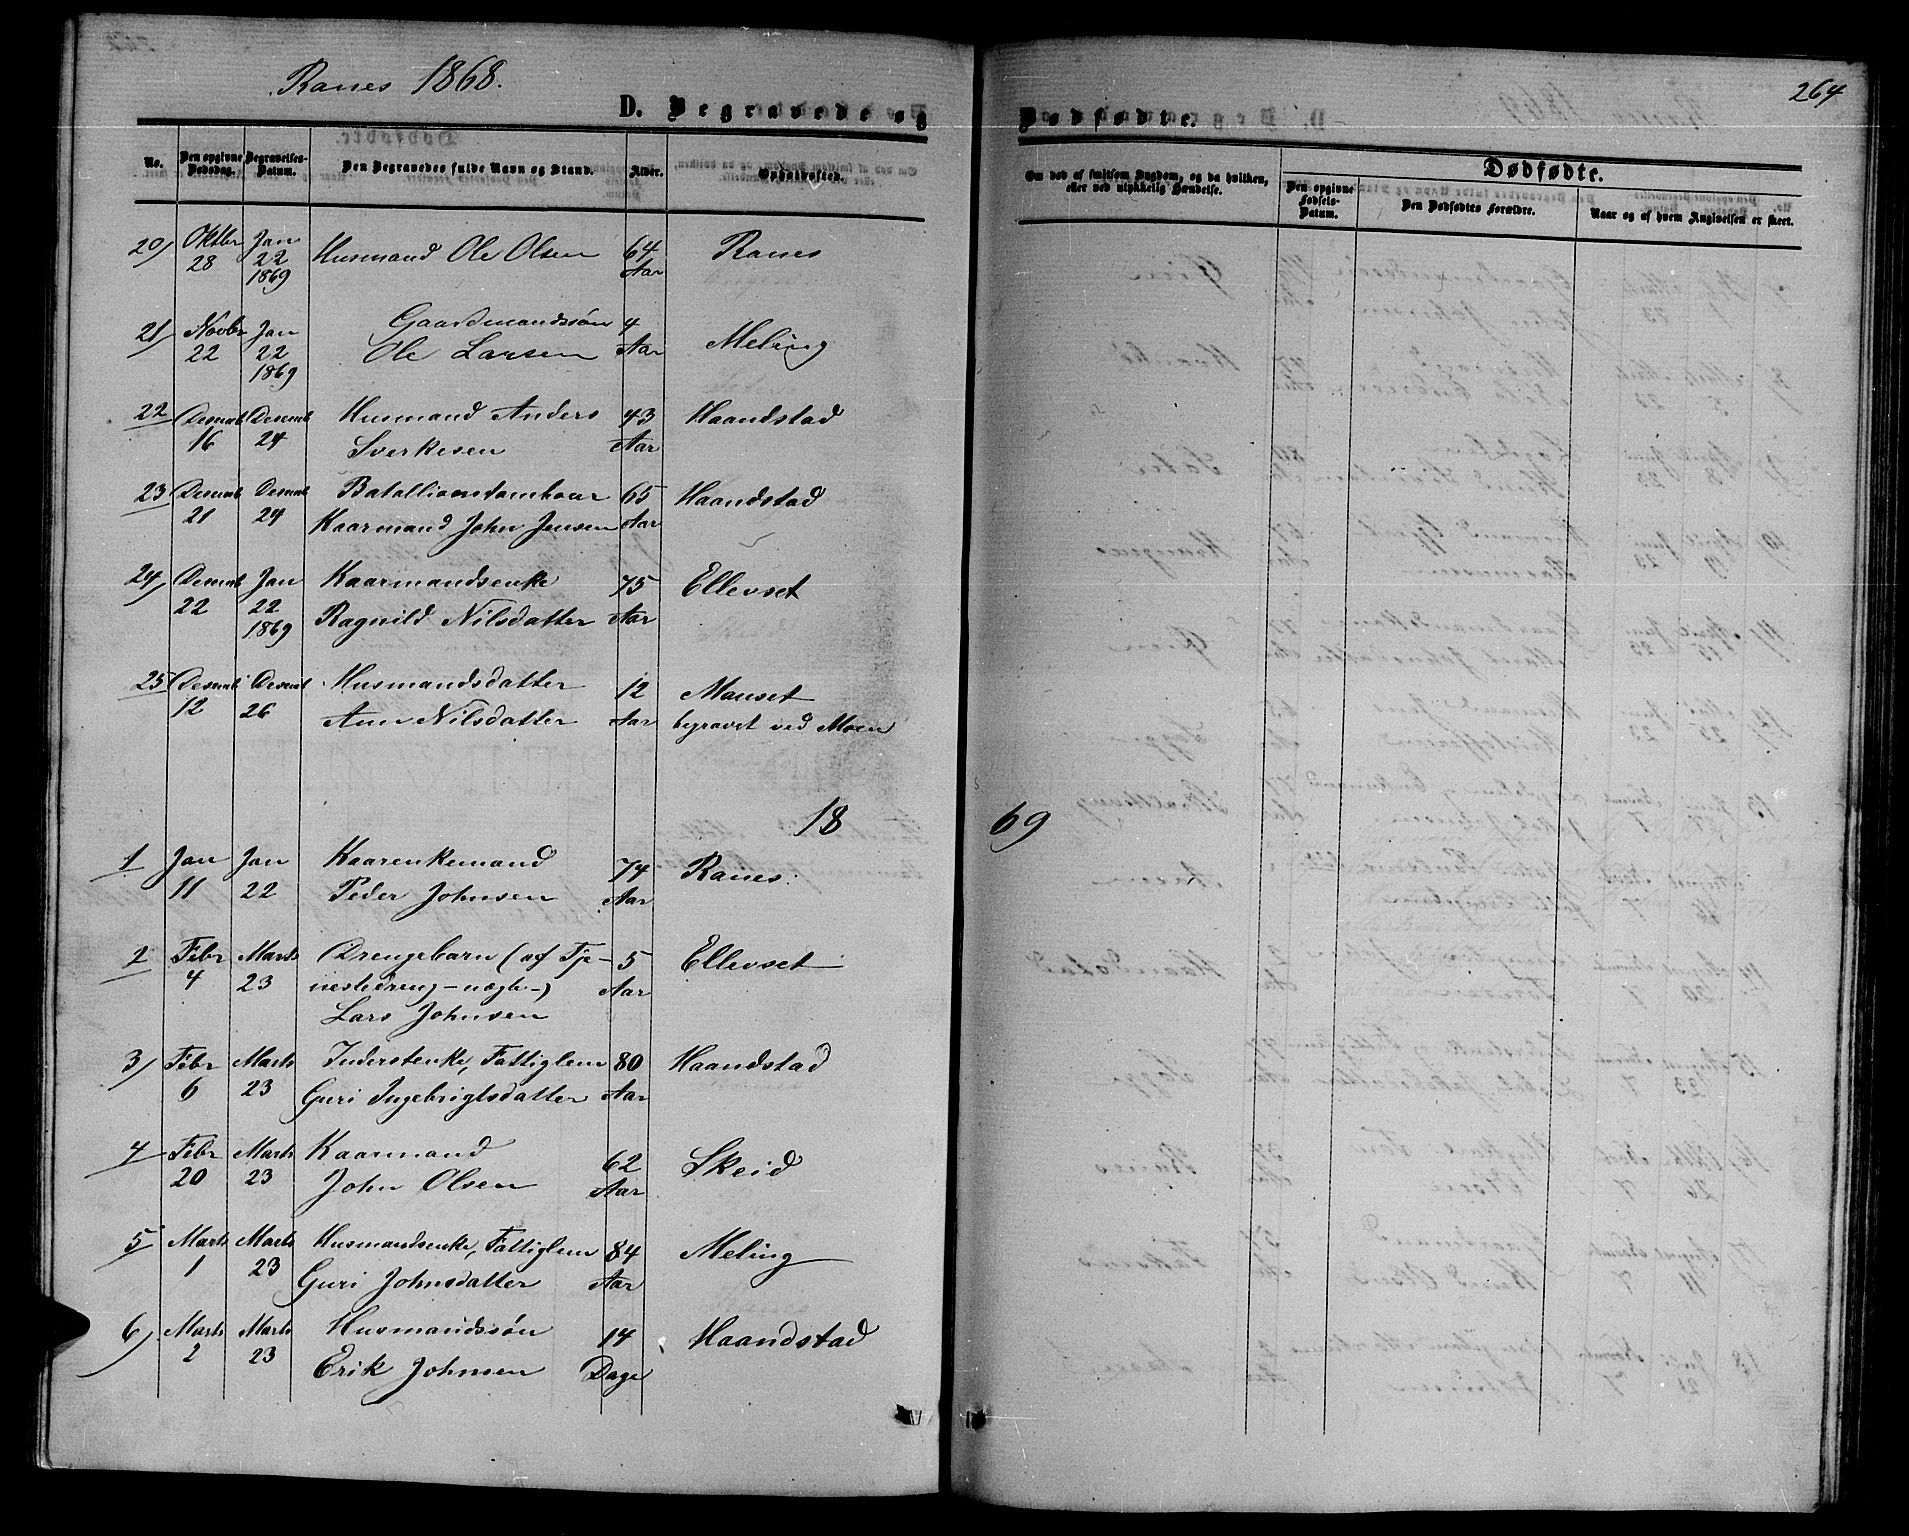 Ranes 1868.
264
D. Begravede og Dødfødte.
No.
Den opgivne Dødsdag.
Begravelses-Datum.
Den Begravedes fulde Navn og Stand.
Alder.
Opholdssted.
Om død af smitsom Sygdom, og da hvilken, eller ved ulykkelig Hændelse.
Dødfødte.
Den opgivne Fødsels-Datum.
Den Dødfødtes Forældre.
Naar og af hvem Angivelsen er skeet.
20) Oktbr 28 Jan 22 1869 Husmand Ole Olsen 64 Aar Ranes
21) Novbr 22 Jan 22 1869 Gaardmandssøn 4 Aar Meling
Ole Larsen
22 Desemb 16 Desemb 24 Husmand Anders 43 Aar Haandstad
Sverkesen
23 Desemb 21 Desemb 24 Bataillonstambour 65 Aar Haandstad
Kaarmand John Jensen
24) Desemb 22 Jan 22 1869 Kaarmandsenke 75 Aar Ellevset
Ragnild Nilsdatter
25 Desemb 12 Desemb 26 Husmandsdatter 12 Aar Mauset
Ann Nilsdatter begravet ved Moen
1869
1 Jan 11 Jan 22 Kaarenkemand 74 Aar Ranes.
Peder Johnsen
2 Febr 4 Marts 23 Drengebarn (af Tje- 5 Aar Ellevset
nestedreng - uægte -)
Lars Johnsen
3) Febr 6 Marts 23 Inderstenke, Fattiglem 80 Aar Haandstad
Guri Ingebrigtsdatter
4 Febr 20 Marts 23 Kaarmand 62 Aar Skeid
John Olsen
5 Marts 1 Marts 23 Husmandsenke, Fattiglem 84 Aar Meling
Guri Johnsdatter
6) Marts 2 Marts 23 Husmandssøn 14 Dage Haandstad
Erik Johnsen